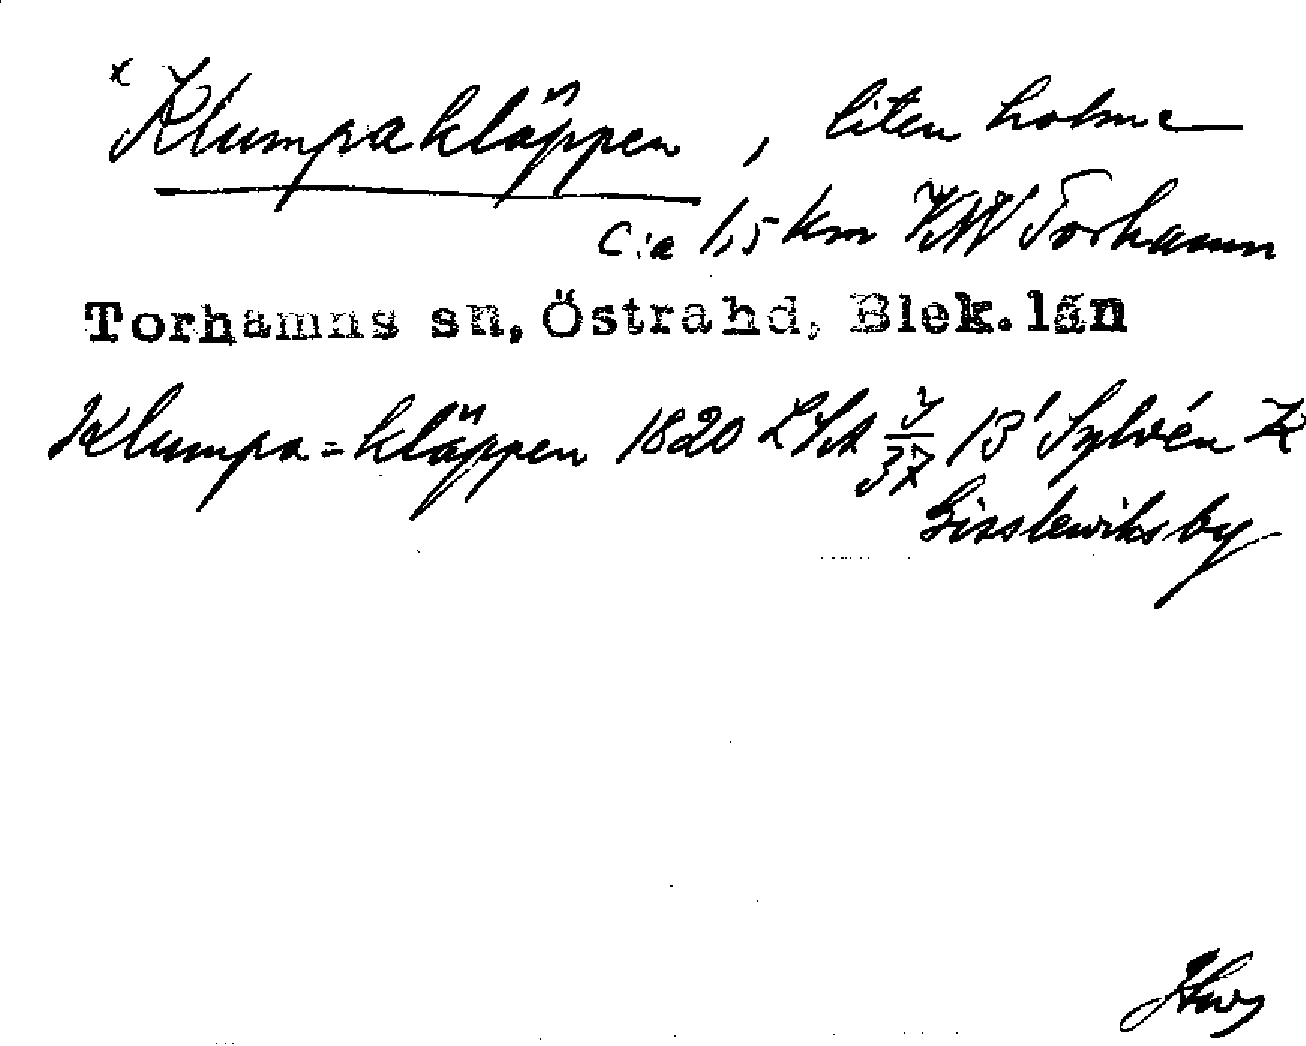 x Klumpakläppen, liten holme
c:a 1,5 km VNV Torhamn
Torhamns sn, Östra hd, Blek. län
Klumpa=kläppen 1820 LSA 13' Sylvén K
Gisslewiks by